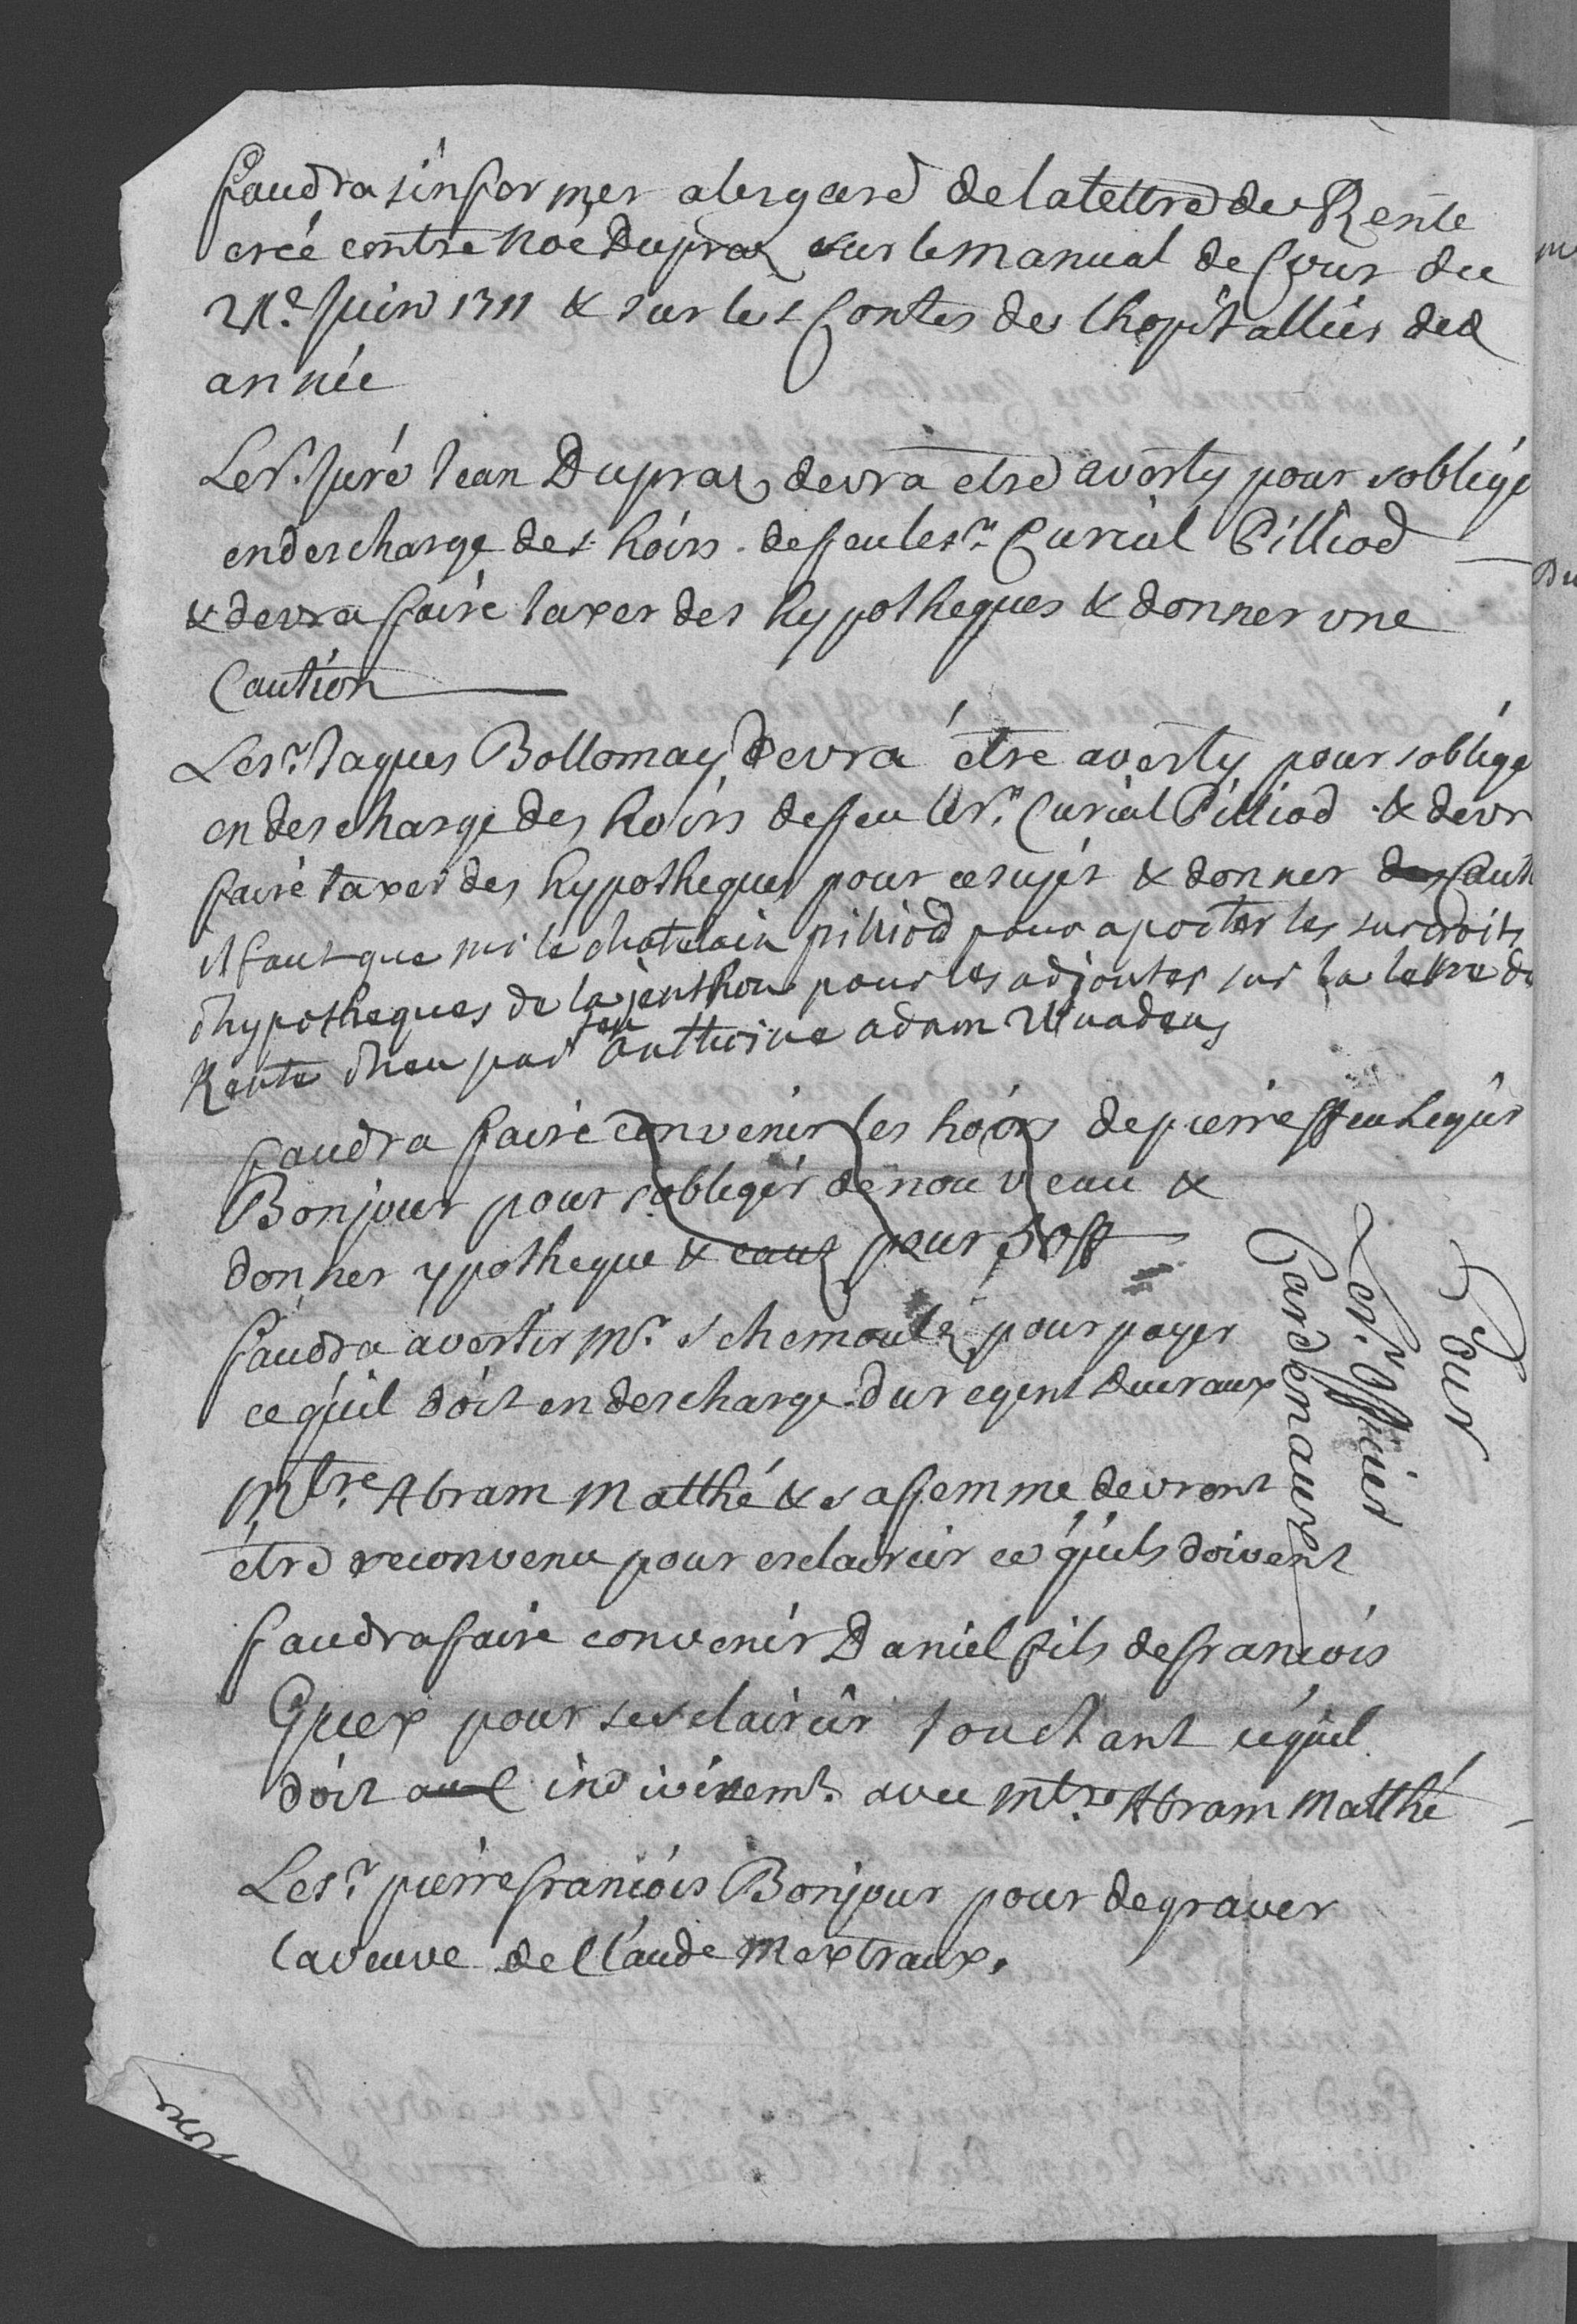 faudra sinformer alesgard de la lettre de Rente
créé contre Noé Dupraz sur le manual de Cour du
21e. Juin 1711 & sur les Contes de lhopitallier de d
année
Le Sr. Juré Jean Dupraz devra etre averty pour soblige
en descharge des hoirs de feu le sr. Curial Pilliod
& devra faire taxer des hypotheques & donner une
Caution
Le sr. Jaques Bollomay devra étre averty pour soblige
en descharge des hoirs de feu le Sr. Curial Pilliod & devr
faire taxer des hypotheques pour ce sujet & donner des Caut
il faut que mr le chatelain pilliod pour aporter les surcroits
dhypotheques de la jenthon pour les adjouter sur la lettre de
Rente dheu par feu Anthoine adam
faudra faire convenir les hoirs de pierre ffeu
Bonjour pour sobliger de nouveau &
donner ypotheque & caut pour 50 ff
faudra avertir Mr. Schemoulz pour payer
ce quil doit en descharge du regent Dueraux
Mtre. Abram Matthé & sa femme devront
étre reconvenu pour esclaircir ce quils doivent
faudra faire convenir Daniel fils de francois
Guex pour sesclaircir touchant cequil
doit indivisemt. avec Mtre Abram Matthé
Le sr. pierre francois Bonjour pour degraver
la veuve de Claude Mextraux.
Pour
Le sr. Officier
Pardernaux